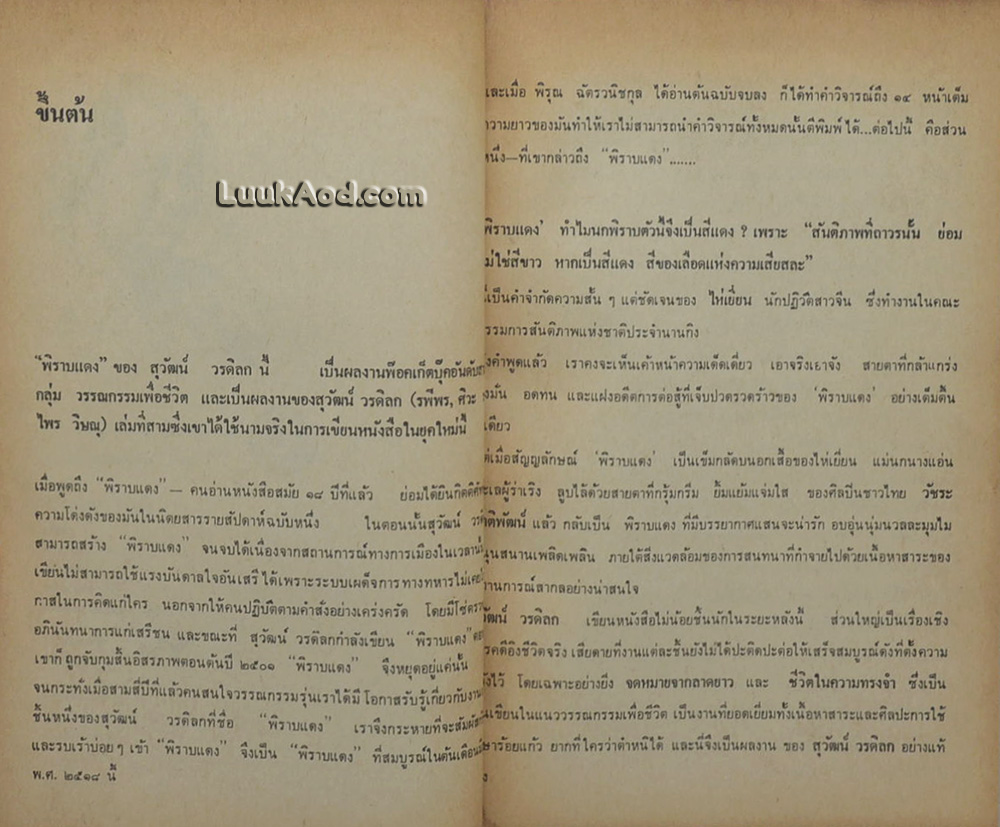 ขึ้นต้น
LuukAod.com
“พิราบแดง” ของ สุวัฒน์ วรดิลก นี้ เป็นผลงานพ๊อคเก็ตบุ๊คอันดับ
กลุ่ม วรรณกรรมเพื่อชีวิต และเป็นผลงานของสุวัฒน์ วรดิลก (รพีพร, ศิวะ
ไพร วิษณุ) เล่มที่สามซึ่งเขาได้ใช้นามจริงในการเขียนหนังสือในยุคใหม่นี้
เมื่อพูดถึง “พิราบแดง” — คนอ่านหนังสือสมัย ๑๘ ปีที่แล้ว ย่อมได้ยินกิตติศัพ
ความโด่งดังของมันในนิตยสารรายสัปดาห์ฉบับหนึ่ง ในตอนนั้นสุวัฒน์
สามารถสร้าง “พิราบแดง” จนจบได้เนื่องจากสถานการณ์ทางการเมืองในเวลา
เขียนไม่สามารถใช้แรงบันดาลใจอันเสรีได้เพราะระบบเผด็จการทางทหารไม่เคย
กาสในการคิดแก่ใคร นอกจากให้คนปฏิบัติตามคำสั่งอย่างเคร่งครัด โดยมีโซ่ตรวน
อภินันทนาการแก่เสรีชน และขณะที่ สุวัฒน์ วรดิลกกำลังเขียน “พิราบแดง”
เขาก็ถูกจับกุมสิ้นอิสรภาพตอนต้นปี ๒๕๐๑ “พิราบแดง” จึงหยุดอยู่แค่นั้น
จนกระทั่งเมื่อสามสี่ปีที่แล้วคนสนใจวรรณกรรมรุ่นเราได้มีโอกาสรับรู้เกี่ยวกับงาน
ชิ้นหนึ่งของสุวัฒน์ วรดิลกที่ชื่อ “พิราบแดง” เราจึงกระหายที่จะสัมผัส
และรบเร้าบ่อยๆ เข้า “พิราบแดง” จึงเป็น “พิราบแดง” ที่สมบูรณ์ในต้นเดือน
พ.ศ. ๒๕๑๘ นี้
และเมื่อ พิรุณ ฉัตรวนิชกุล ได้อ่านต้นฉบับจบลง ก็ได้ทำคำวิจารณ์ถึง ๑๔ หน้าเต็ม
ความยาวของมันทำให้เราไม่สามารถนำคำวิจารณ์ทั้งหมดนั้นตีพิมพ์ได้...ต่อไปนี้ คือส่วน
หนึ่ง—ที่เขากล่าวถึง “พิราบแดง”.......
พิราบแดง’ ทำไมนกพิราบตัวนี้จึงเป็นสีแดง ? เพราะ “สันติภาพที่ถาวรนั้น ย่อม
ไม่ใช่สีขาว หากเป็นสีแดง สีของเลือดแห่งความเสียสละ”
นี่เป็นคำจำกัดความสั้น ๆ แต่ชัดเจนของ ไห่เยี่ยน นักปฏิวัติสาวจีน ซึ่งทำงานในคณะ
กรรมการสันติภาพแห่งชาติประจำนานกิง
คำพูดแล้ว เราคงจะเห็นเค้าหน้าความเด็ดเดี่ยว เอาจริงเอาจัง สายตาที่กล้าแกร่ง
มั่น อดทน และแฝงอดีตการต่อสู้ที่เจ็บปวดรวดร้าวของ ‘พิราบแดง’ อย่างเต็มตื้น
เดียว
เมื่อสัญญลักษณ์ ‘พิราบแดง’ เป็นเข็มกลัดบนอกเสื้อของไห่เยี่ยน แม่นกนางแอ่น
ทะเลผู้ร่าเริง ลูบไล้ด้วยสายตาที่กรุ้มกริ่ม ยิ้มแย้มแจ่มใส ของศิลปินชาวไทย วัชระ
พัฒน์ แล้ว กลับเป็น พิราบแดง ที่มีบรรยากาศแสนจะน่ารัก อบอุ่นนุ่มนวลละมุนไม
สนุกสนานเพลิดเพลิน ภายใต้สิ่งแวดล้อมของการสนทนาที่กำจายไปด้วยเนื้อหาสาระของ
สถานการณ์สากลอย่างน่าสนใจ
สุวัฒน์ วรดิลก เขียนหนังสือไม่น้อยชิ้นนักในระยะหลังนี้ ส่วนใหญ่เป็นเรื่องเชิง
สารคดีอิงชีวิตจริง เสียดายที่งานแต่ละชิ้นยังไม่ได้ปะติดปะต่อให้เสร็จสมบูรณ์ดังที่ตั้งความ
หวังไว้ โดยเฉพาะอย่างยิ่ง จดหมายจากลาดยาว และ ชีวิตในความทรงจำ ซึ่งเป็น
งานเขียนในแนววรรณกรรมเพื่อชีวิต เป็นงานที่ยอดเยี่ยมทั้งเนื้อหาสาระและศิลปะการใช้
ภาษาร้อยแก้ว ยากที่ใครว่าตำหนิได้ และนี่จึงเป็นผลงาน ของ สุวัฒน์ วรดิลก อย่างแท้